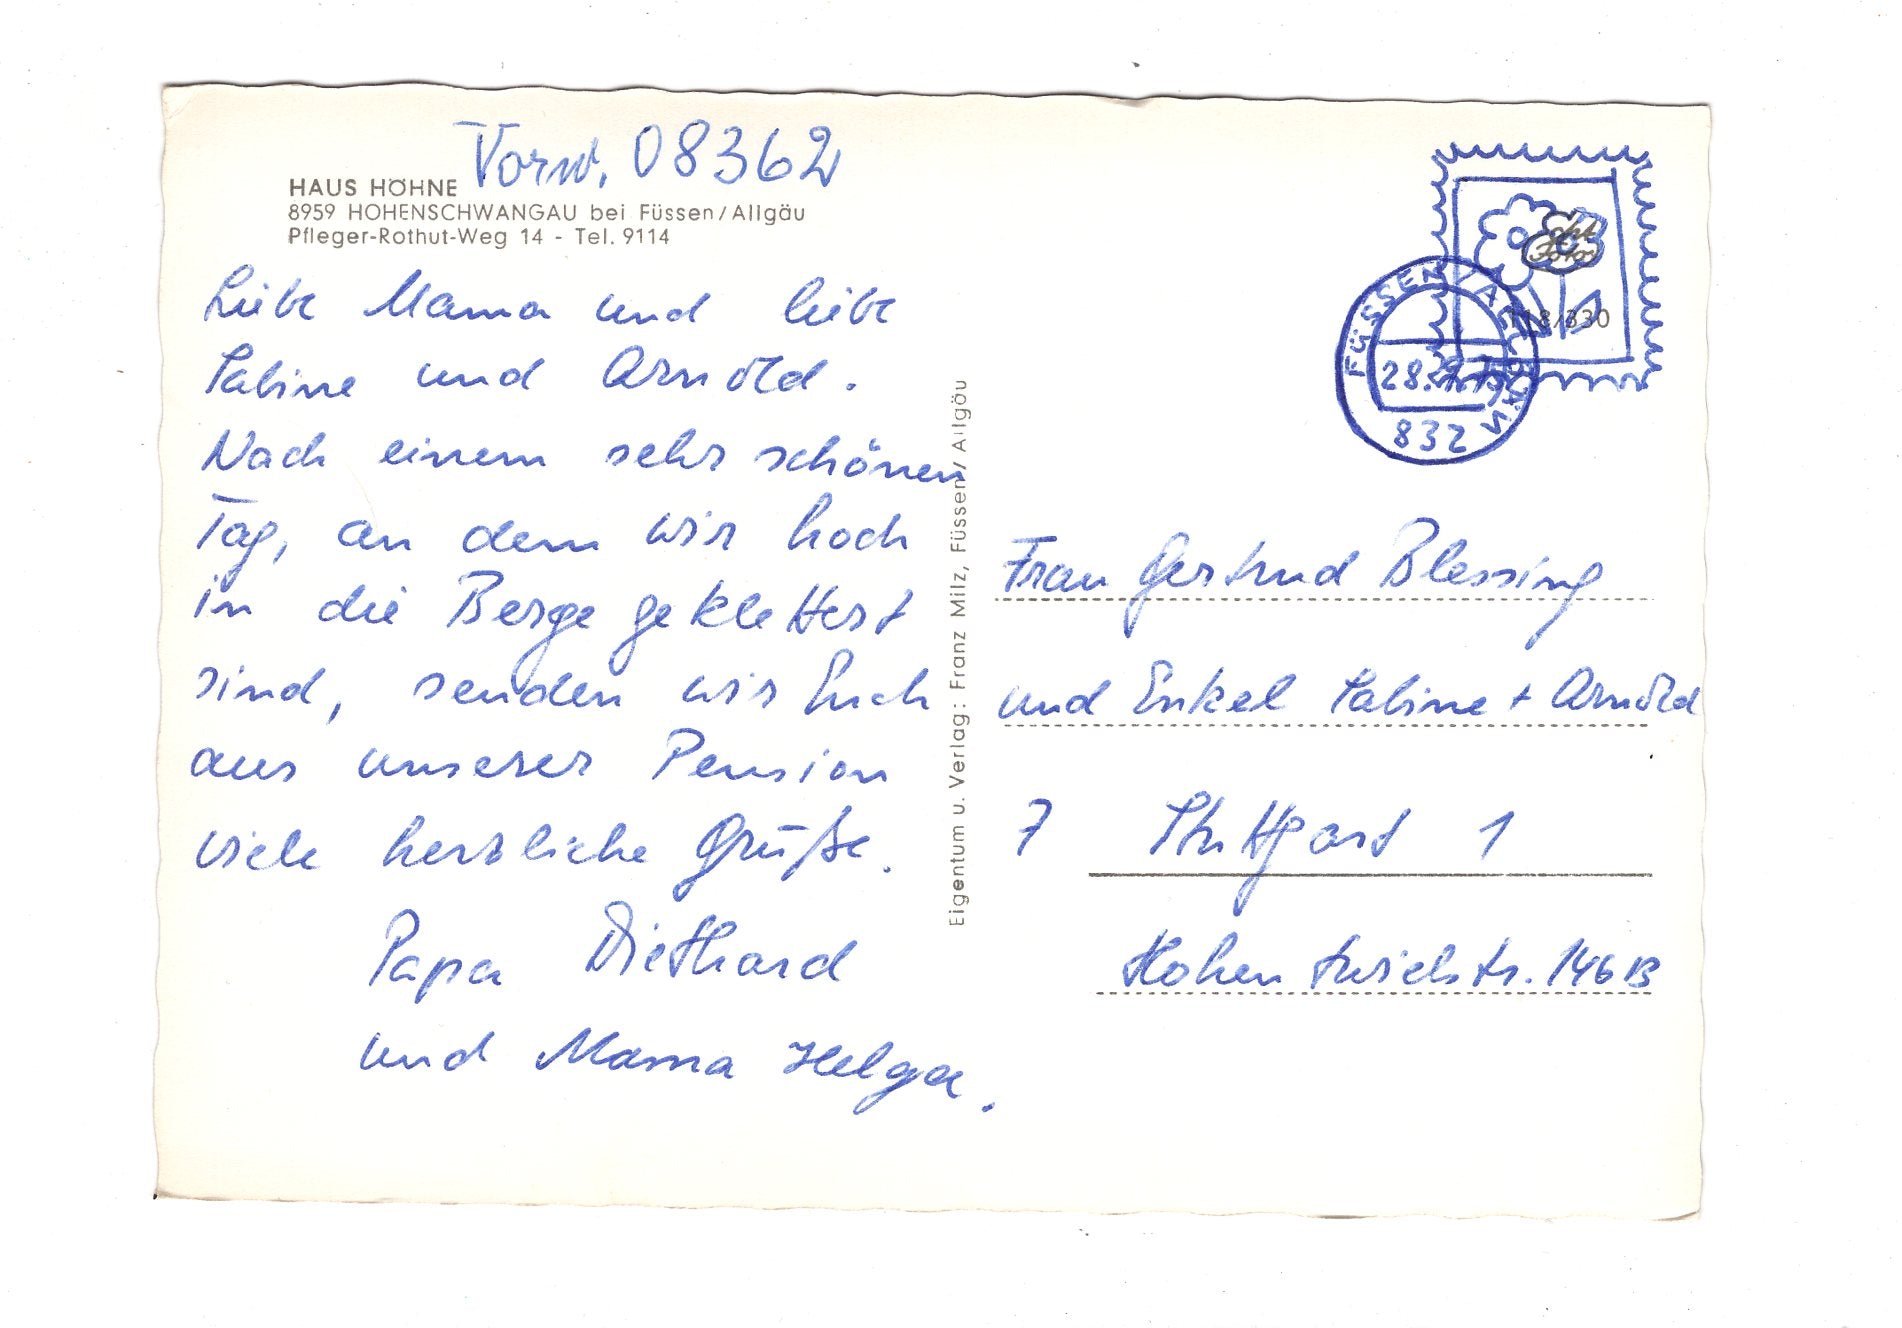 Vorw. 08362
HAUS HÖHNE
8959 HOHENSCHWANGAU bei Füssen/Allgäu
Pfleger-Rothut-Weg 14 - Tel. 9114
Liebe Mama und liebe
Sabine und Arnold.
Nach einem sehr schönen
Tag, an dem wir hoch
in die Berge geklettert
sind, senden wir Euch
aus unserer Pension
viele herzliche Grüße.
Papa Diethard
und Mama Helga.
Eigentum u. Verlag: Franz Milz, Füssen/Allgöu
Echt
Foto
118/330
FÜSSEN ALLGÄU
28.
832
Frau Gertrud Blessing
und Enkel Sabine + Arnold
7 Stuttgart 1
Hohentwielstr. 146B